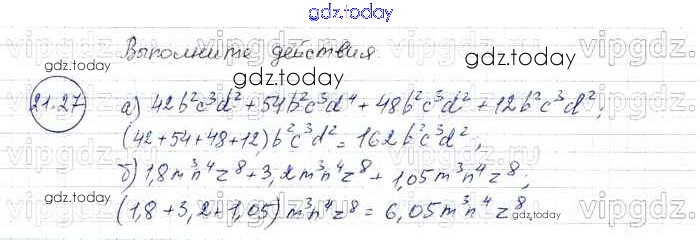 gdz.today
Выполните действия
gdz.today
21.27 а) 42b²c³d² + 54b²c³d⁴ + 48b²c³d² + 12b²c³d²;
(42+54+48+12)b²c³d² = 162b²c³d²;
б) 1,8m³n⁴z⁸ + 3,2m³n⁴z⁸ + 1,05m³n⁴z⁸;
(1,8 + 3,2 + 1,05) m³n⁴z⁸ = 6,05m³n⁴z⁸
gdz.today
gdz.today
vipgdz.
vipgdz.
vipgdz.
vipgdz.